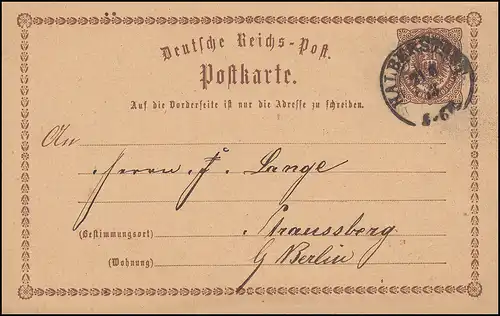 Deutsche Reichs-Post.
Postkarte.
Auf die Vorderseite ist nur die Adresse zu schreiben.
HALBERSTADT
5-6
An
Herrn F. Lange
(Bestimmungsort) Straussberg
(Wohnung) Berlin